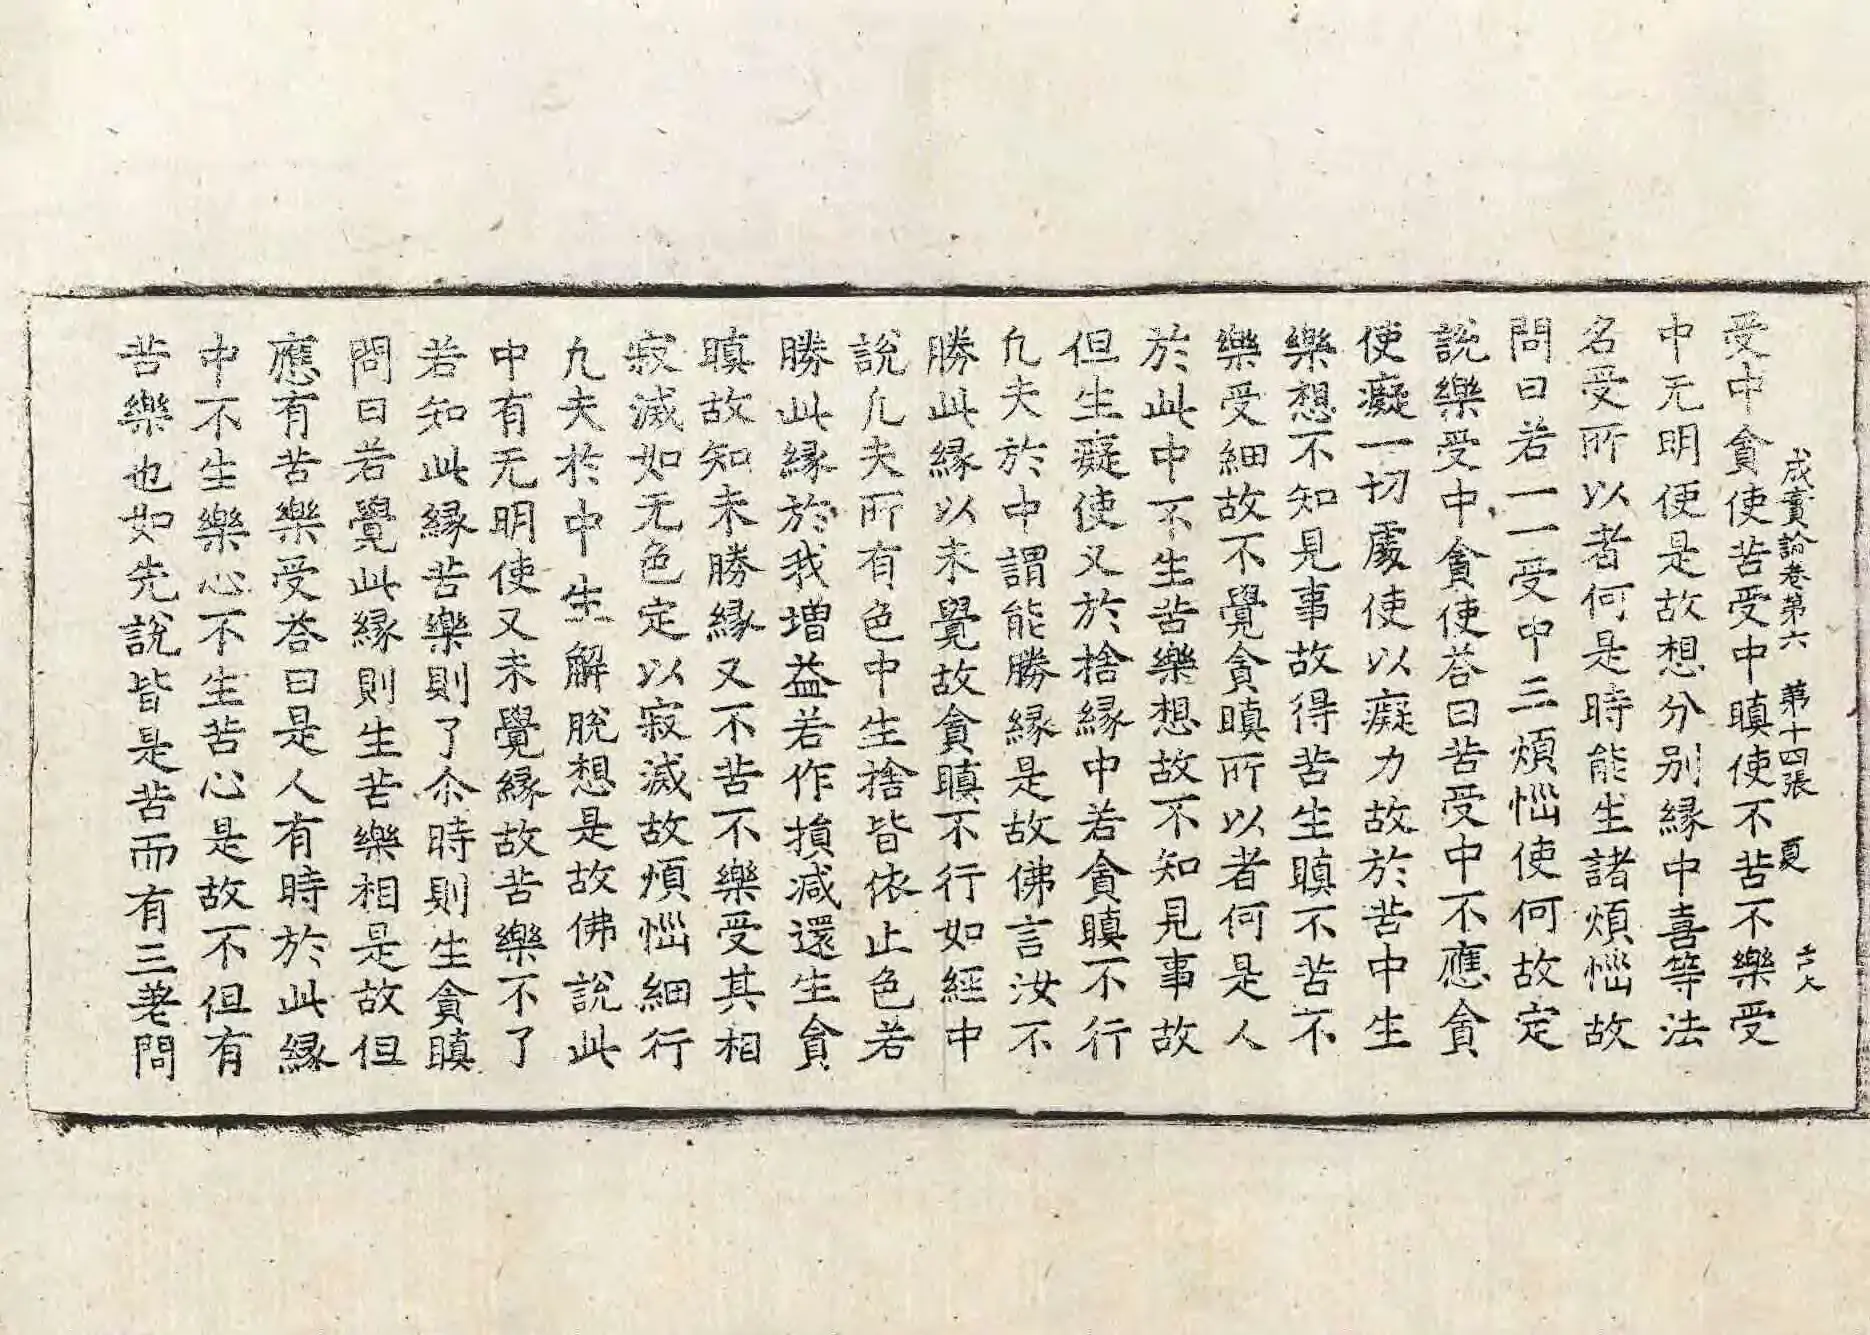 成實論卷第六　第十四張　夏
受中貪使苦受中瞋使不苦不樂受
中无明使是故想分别縁中喜等法
名受所以者何是時能生諸煩惱故
問曰若一一受中三煩惱使何故定
說樂受中貪使荅曰苦受中不應貪
使癡一切處使以癡力故於苦中生
樂想不知見事故得苦生瞋不苦不
樂受細故不覺貪瞋所以者何是人
於此中不生苦樂想故不知見事故
但生癡使又於捨縁中若貪瞋不行
凡夫於中謂能勝縁是故佛言汝不
勝此縁以未覺故貪瞋不行如經中
說凡夫所有色中生捨皆依止色若
勝此縁於我增益若作損減還生貪
瞋故知未勝縁又不苦不樂受其相
寂滅如无色定以寂滅故煩惱細行
凡夫於中生解脫想是故佛說此
中有无明使又未覺縁故苦樂不了
若知此縁苦樂則了尒時則生貪瞋
問曰若覺此縁則生苦樂相是故但
應有苦樂受荅曰是人有時於此縁
中不生樂心不生苦心是故不但有
苦樂也如先說皆是苦而有三差問